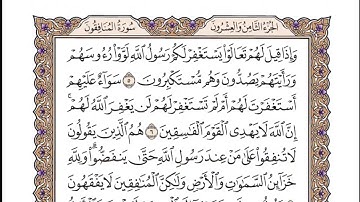 سُورَةُ المُنَافِقُون الجُزْءُ الثَّامِنُ وَالعِشْرُونَ
وَإِذَا قِيلَ لَهُمْ تَعَالَوْا۟ يَسْتَغْفِرْ لَكُمْ رَسُولُ ٱللَّهِ لَوَّوْا۟ رُءُوسَهُمْ
وَرَأَيْتَهُمْ يَصُدُّونَ وَهُم مُّسْتَكْبِرُونَ ٥ سَوَآءٌ عَلَيْهِمْ
أَسْتَغْفَرْتَ لَهُمْ أَمْ لَمْ تَسْتَغْفِرْ لَهُمْ لَن يَغْفِرَ ٱللَّهُ لَهُمْ
إِنَّ ٱللَّهَ لَا يَهْدِى ٱلْقَوْمَ ٱلْفَٰسِقِينَ ٦ هُمُ ٱلَّذِينَ يَقُولُونَ
لَا تُنفِقُوا۟ عَلَىٰ مَنْ عِندَ رَسُولِ ٱللَّهِ حَتَّىٰ يَنفَضُّوا۟ وَلِلَّهِ
خَزَآئِنُ ٱلسَّمَٰوَٰتِ وَٱلْأَرْضِ وَلَٰكِنَّ ٱلْمُنَٰفِقِينَ لَا يَفْقَهُونَ